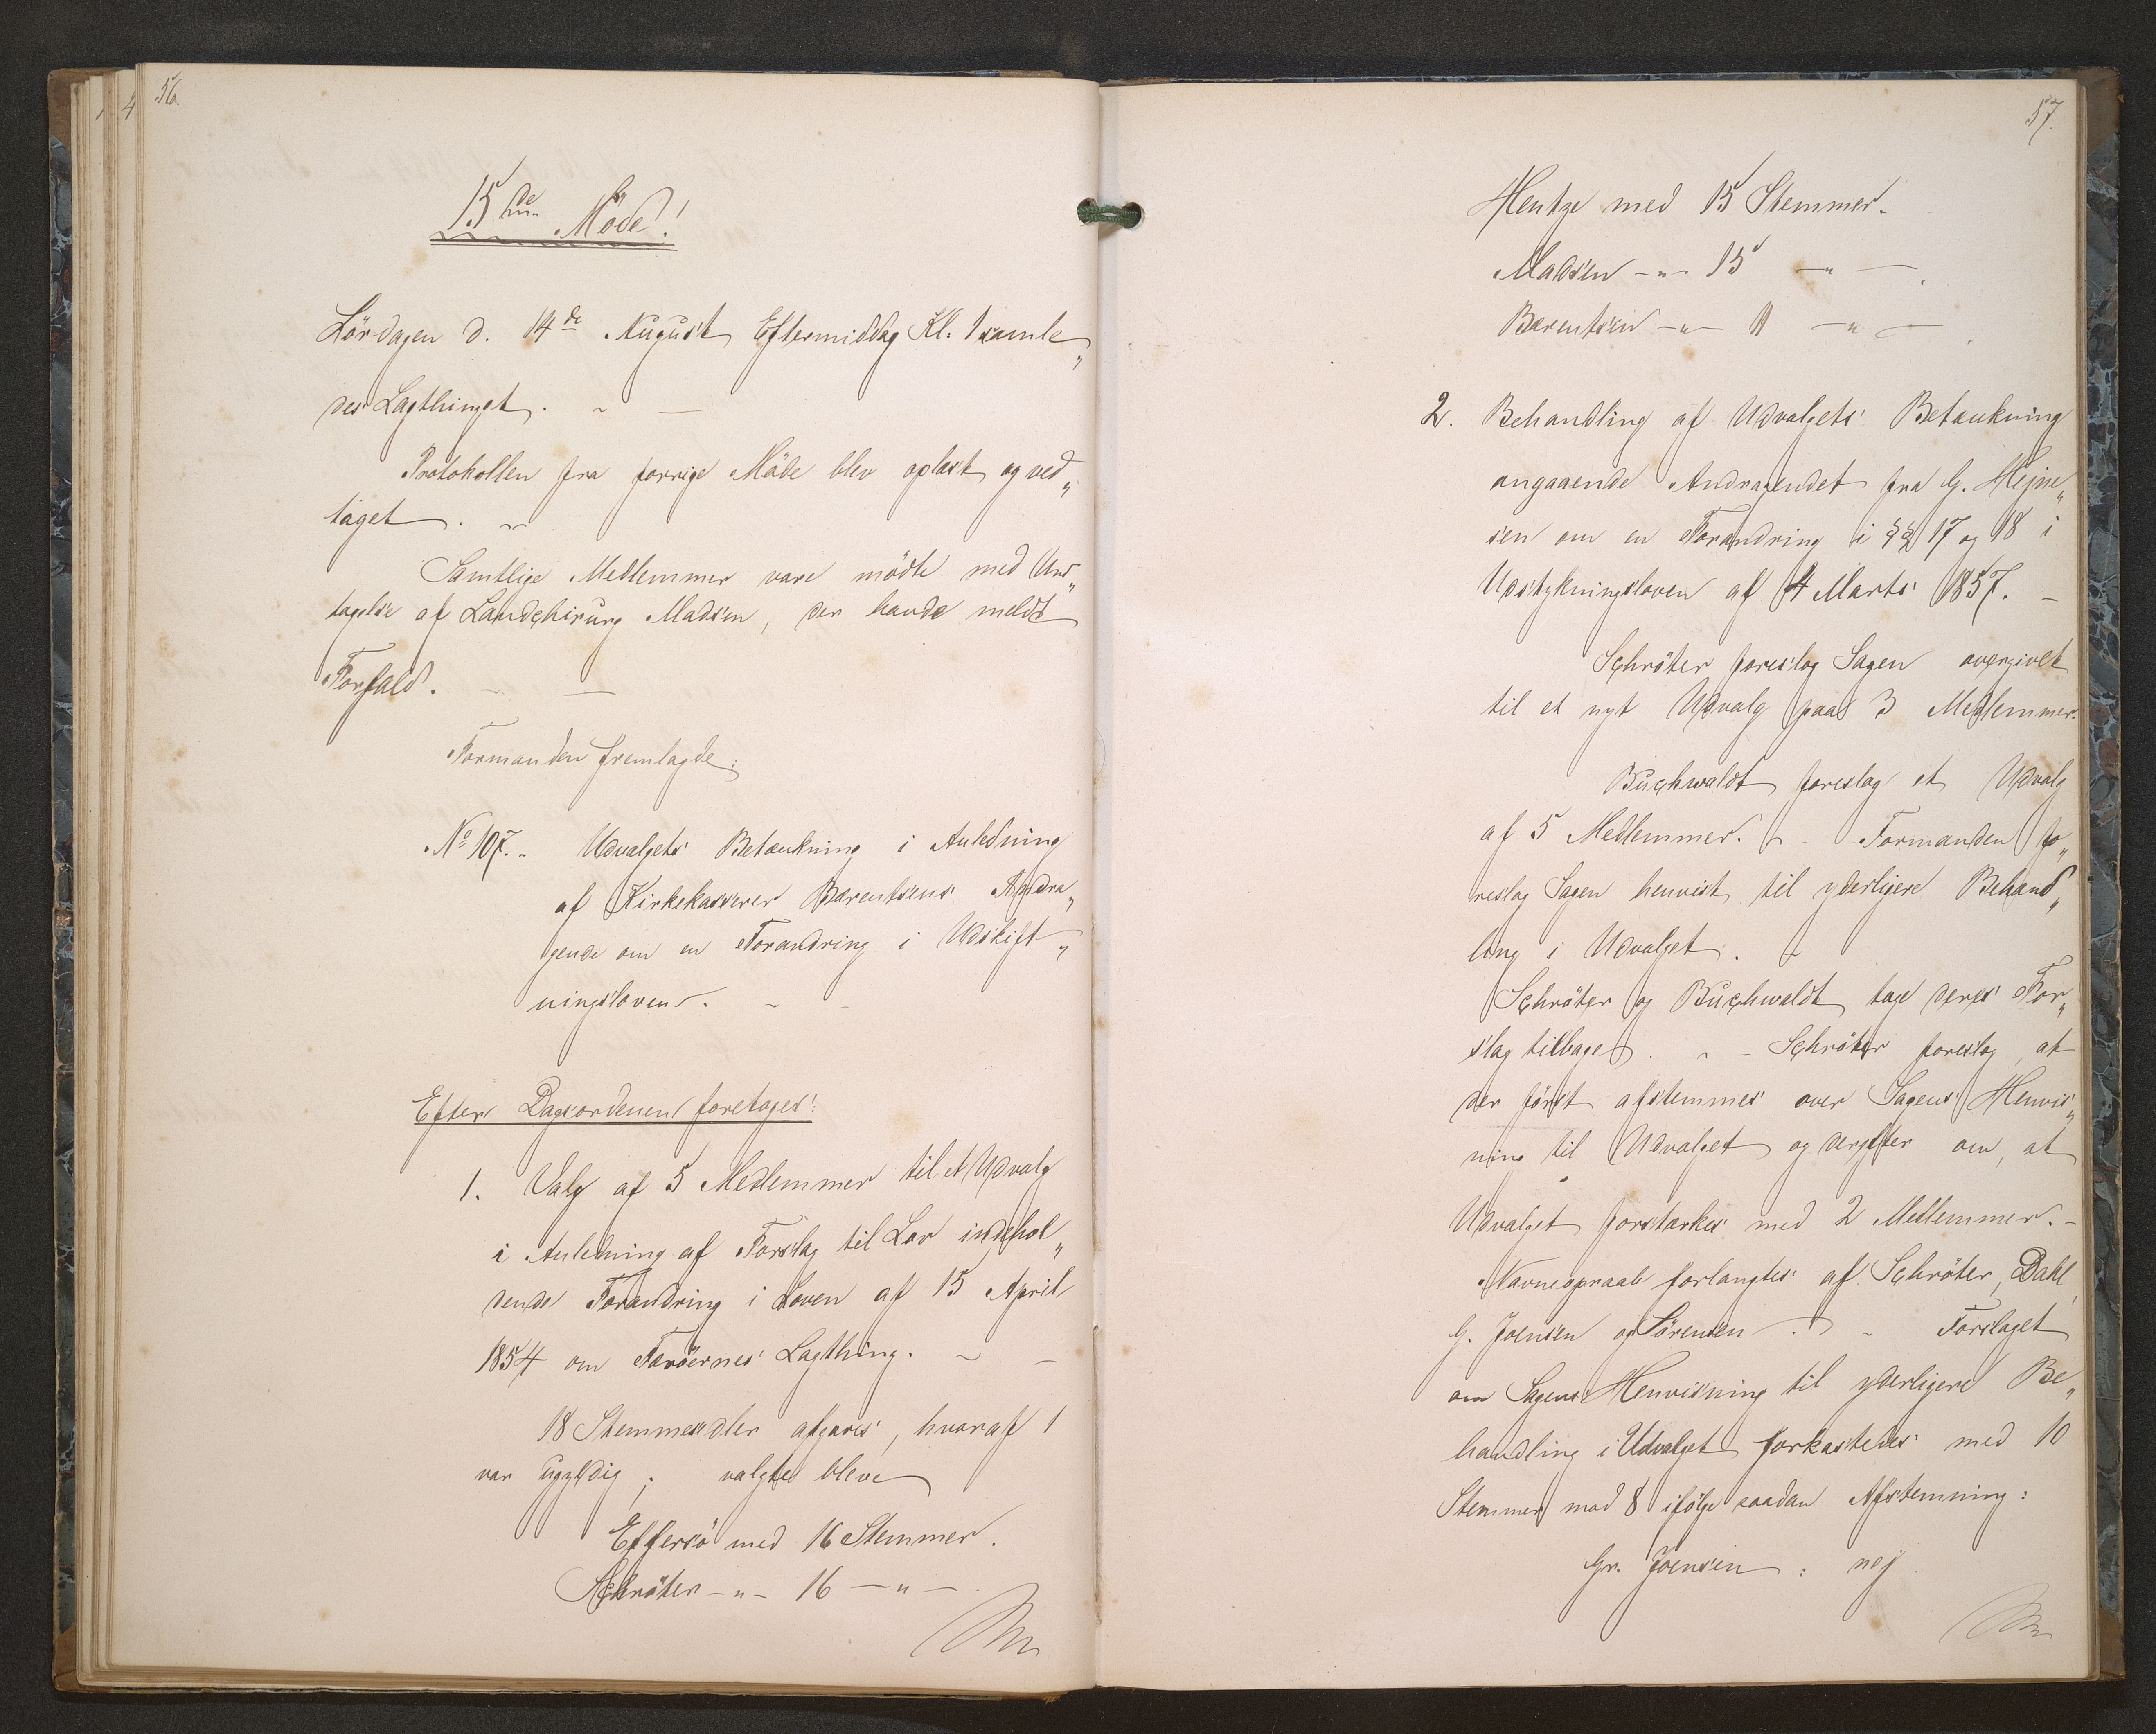 56.
15de Möde!
Lördagen d. 14de August Eftermiddag Kl: 1 samle„
des Lagthinget. ~ —
Protokollen fra forrige Möde blev oplæst og ved„
taget. ~
Samtlige Medlemmer vare mödte med Und„
tagelse af Landchirurg Madsen, der havde meldt
Forfald. ~ —
Formanden fremlagde:
No 107. - Udvalgets Betænkning i Anledning
af Kirkekasserer Bærentsens Andra„
gende om en Forandring i Udskift„
ningsloven. ~ -
Efter Dagsordenen foretoges:
1. Valg af 5 Medlemmer til et Udvalg
i Anledning af Forslag til Lov indehol„
dende Forandring i Loven af 15 April
1854 om Færöernes Lagthing. ~ -
18 Stemmesedler afgaves, hvoraf 1
var ugyldig; valgte bleve
Effersö med 16 Stemmer.
Schröter -"- 16 -"-.
57.
Hentze med 15 Stemmer.
Madsen -"- 15 -"-.
Bærentsen -"- 11 -"-.
2. Behandling af Udvalgets Betænkning
angaaende Andragendet fra G. Hejne„
sen om en Forandring i §§ 17 og 18 i
Udstykningsloven af 4 Marts 1857. -
Schröter foreslog Sagen overgivet
til et nyt Udvalg paa 3 Medlemmer.
Buchwaldt foreslog et Udvalg
af 5 Medlemmer. ~ - Formanden fo„
reslog Sagen henvist til yderligere Behand„
ling i Udvalget. ~
Schröter og Buchwaldt tage deres For„
slag tilbage. ~ - Schröter foreslog, at
der först afstemmes over Sagens Henvis„
ning til Udvalget og derefter om, at
Udvalget forstærkes med 2 Medlemmer. -
Navneopraab forlangtes af Schröter, Dahl,
G. Joensen og Sörensen. ~ - Forslaget
om Sagens Henvisning til yderligere Be„
handling i Udvalget forkastedes med 10
Stemmer mod 8 ifölge saadan Afstemning:
Gr. Joensen: nej